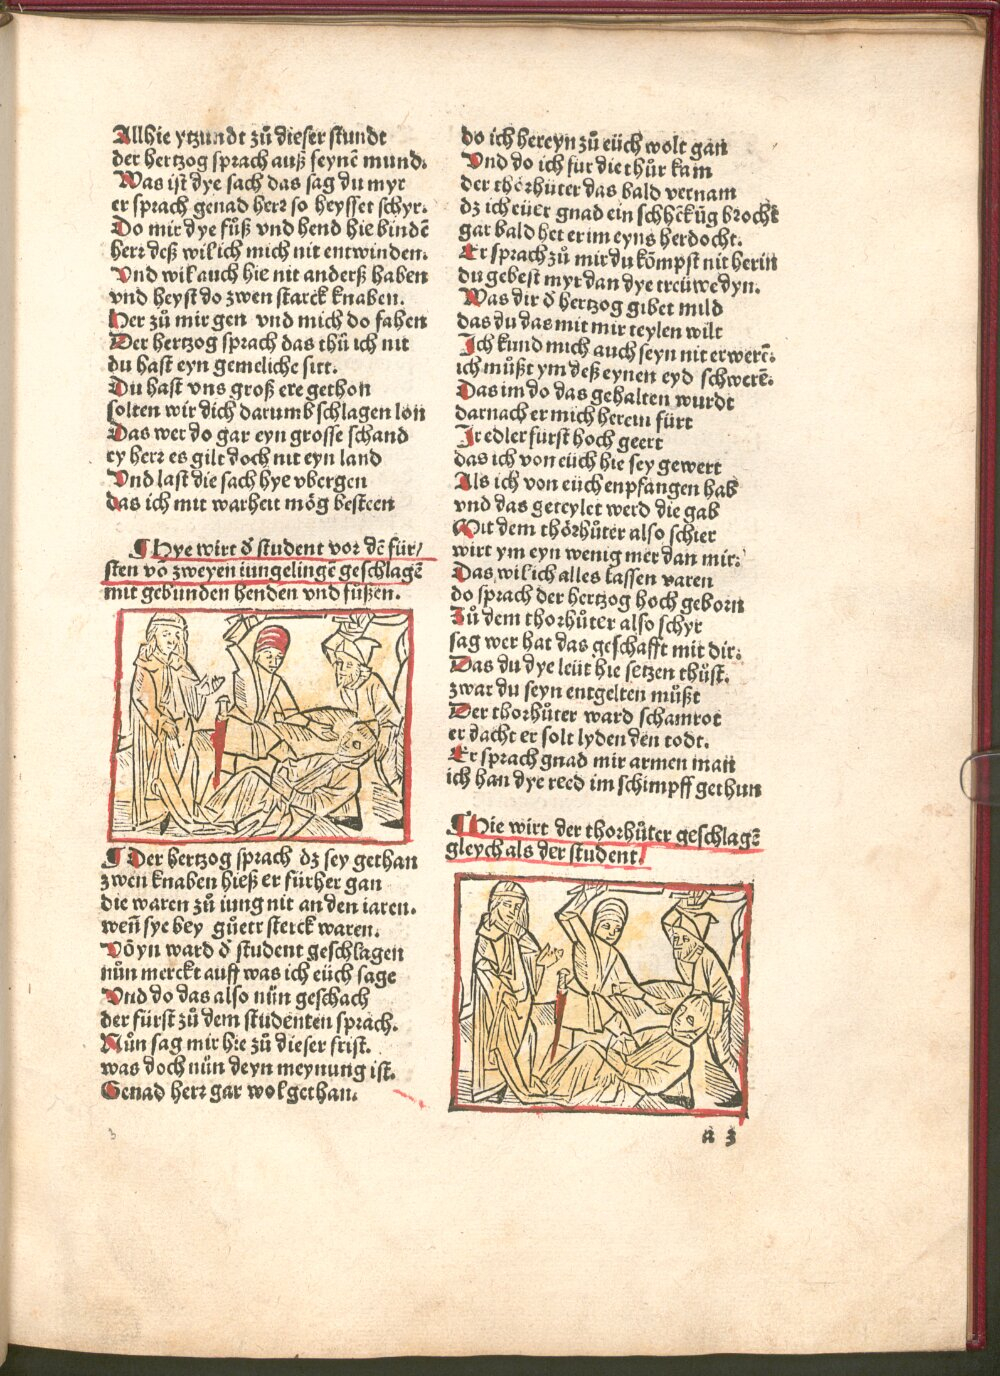 Allhie ytzundt zů dieser stundt
der hertzog sprach auß seynē mund.
Was ist dye sach das sag du myr
er sprach genad herr so heysset schyr.
Do mir dye fůß vnd hend hie bindē
herr deß wil ich mich nit entwinden.
Vnd wil auch hie nit anderß haben
vnd heyst do zwen starck knaben.
Her zů mir gen vnd mich do fahen
Der hertzog sprach das thů ich nit
du hast eyn gemeliche sitt.
Du hast vns groß ere gethon
solten wir dich darumb schlagen lon
Das wer do gar eyn grosse schand
ey herr es gilt doch nit eyn land
Vnd last die sach hye vbergen
das ich mit warheit mög besteen
¶ Hye wirt d̄ student vor dē für/
sten vō zweyen iungelingē geschlagē
mit gebunden henden vnd fůßen.
¶ Der hertzog sprach dz sey gethan
zwen knaben hieß er fürher gan
die waren zů iung nit an den iaren.
wen̄ sye bey gůetr sterck waren.
Vō yn ward d̄ student geschlagen
nůn merckt auff was ich eüch sage
Vnd do das also nün geschach
der fürst zů dem studenten sprach.
Nůn sag mir hie zů dieser frist.
was doch nün deyn meynung ist.
Genad herr gar wol gethan.
do ich hereyn zů eüch wolt gan
Vnd do ich fur die thůr kam
der thorhüter das bald vernam
dz ich eüer gnad ein schhēkūg brocht
gar bald het er im eyns herdocht.
Er sprach zů mir du kōmpst nit herin
du gebest myr dan dye treüwe dyn.
Was dir d̄ hertzog gibet mild
das du das mit mir teylen wilt
Ich kund mich auch seyn nit erwerē.
ich můßt ym deß eynen eyd schwerē.
Das im do das gehalten wurdt
darnach er mich herein fürt
Ir edler furst hoch geert
das ich von eüch hie sey gewert
Als ich von eüch enpfangen hab
vnd das geteylet werd die gab
Mit dem thörhůter also schier
wirt ym eyn wenig mer dan mir.
Das wil ich alles lassen varen
do sprach der hertzog hoch geborn
Zů dem thorhůter also schyr
sag wer hat das geschafft mit dir.
Das du dye leüt hie setzen thůst.
zwar du seyn entgelten můßt
Der thorhůter ward schamrot
er dacht er solt lyden den todt.
Er sprach gnad mir armen man
ich han dye reed im schimpff gethun
¶ Hie wirt der thorhůter geschlagē
gleych als der student.
a 3
3